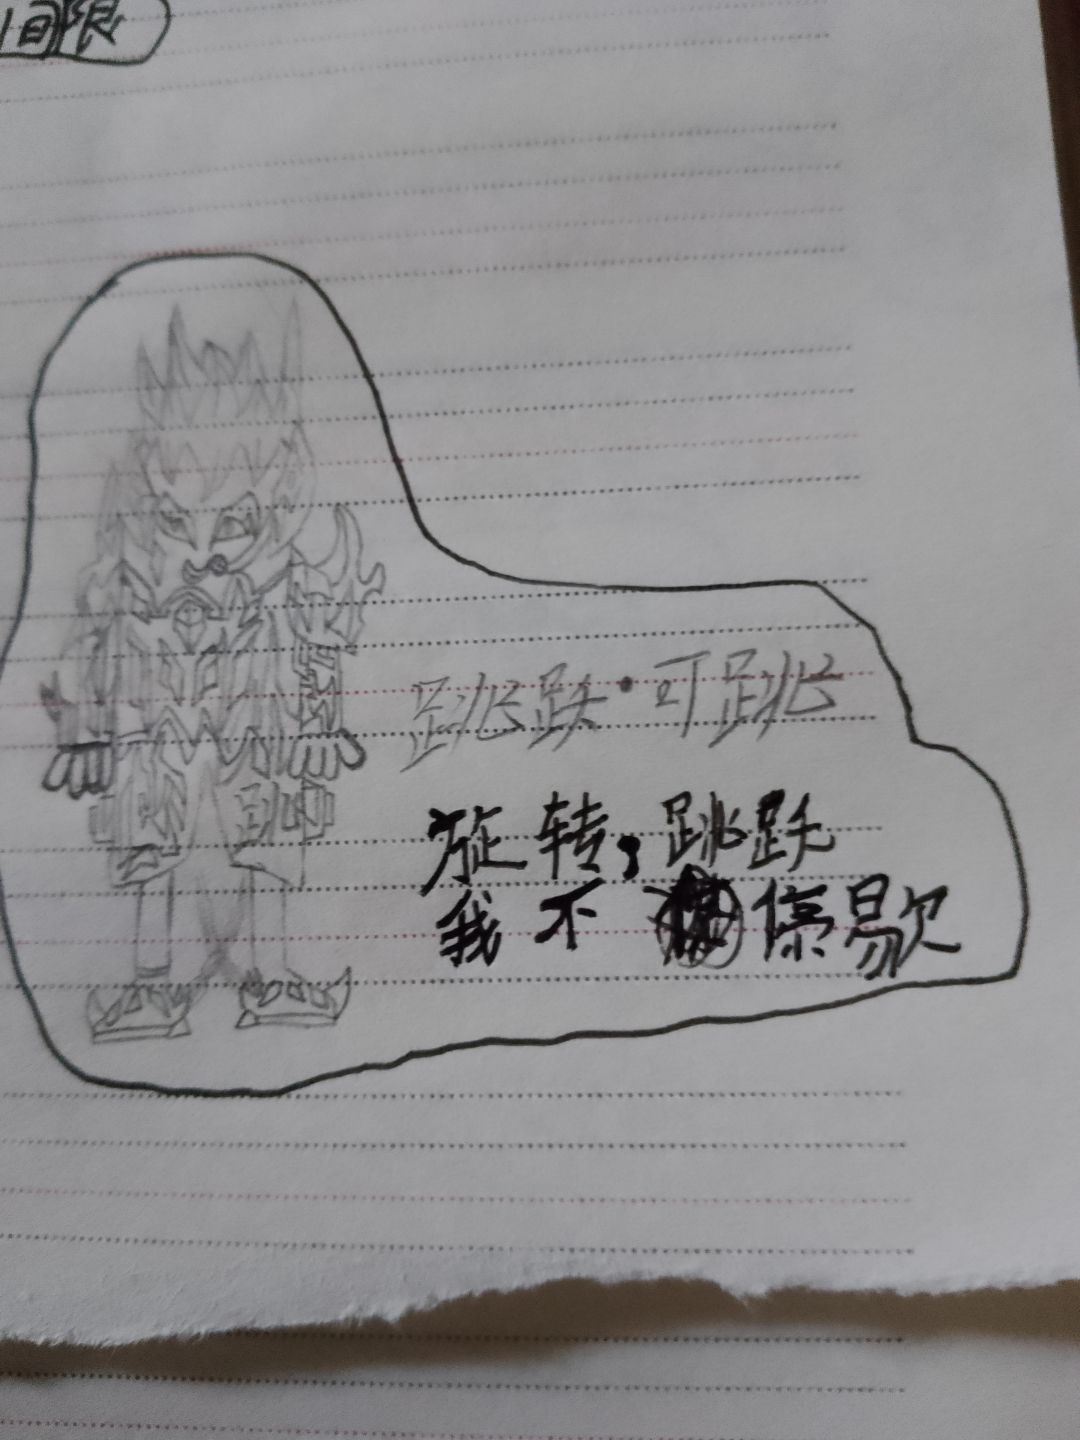 间限
跳跃·可跳
跳
旋转，跳跃
我不停歇